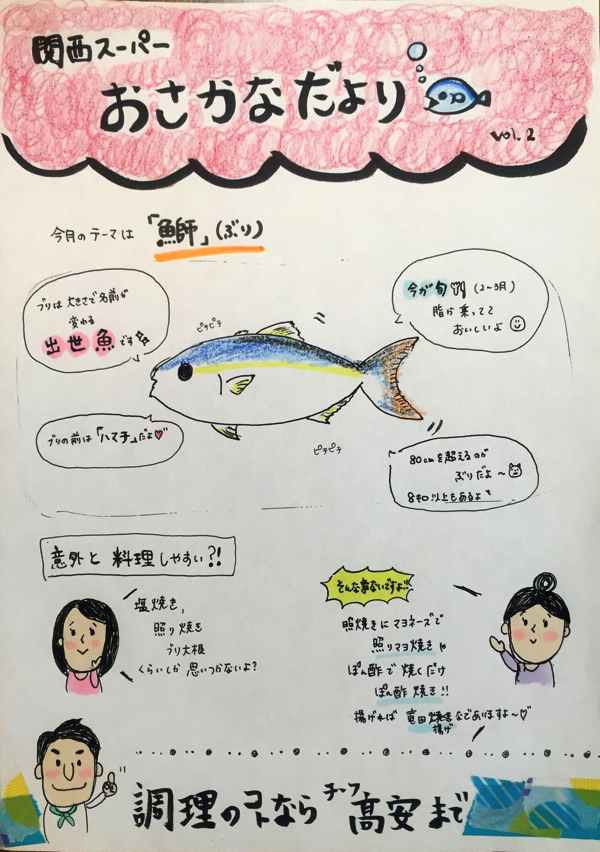 関西スーパー
おさかなだより
vol.2
今月のテーマは「鰤」(ぶり)
ブリは大きさで名前が
変わる
出世魚です
ピチピチ
今が旬(2~3月)
脂が乗ってて
おいしいよ
ブリの前は「ハマチ」だよ
ピチピチ
80cmを超えるのが
ぶりだよ~
8キロ以上もあるよ
意外と料理しやすい?!
塩焼き、
照り焼き
ブリ大根
くらいしか思いつかないよ?
そんな事ないですよ!!
照焼きにマヨネーズで
照りマヨ焼きや
ぽん酢で焼くだけ
ぽん酢焼き!!
揚げれば竜田焼きなどありますよ~
揚げ
調理のコトならチーフ髙安まで